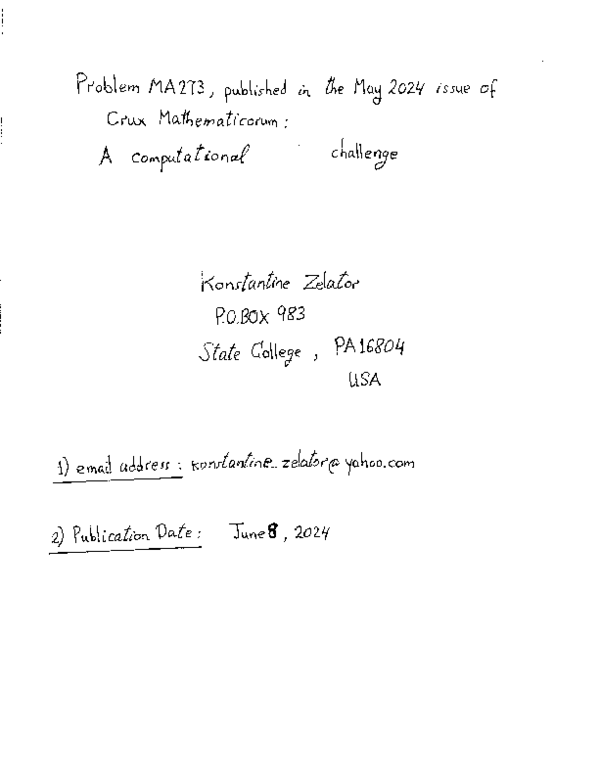 Problem MA273, published in the May 2024 issue of
Crux Mathematicorum:
A computational challenge
Konstantine Zelator
P.O.BOX 983
State College, PA 16804
USA
1) email address: konstantine_zelator@yahoo.com
2) Publication Date: June 8, 2024